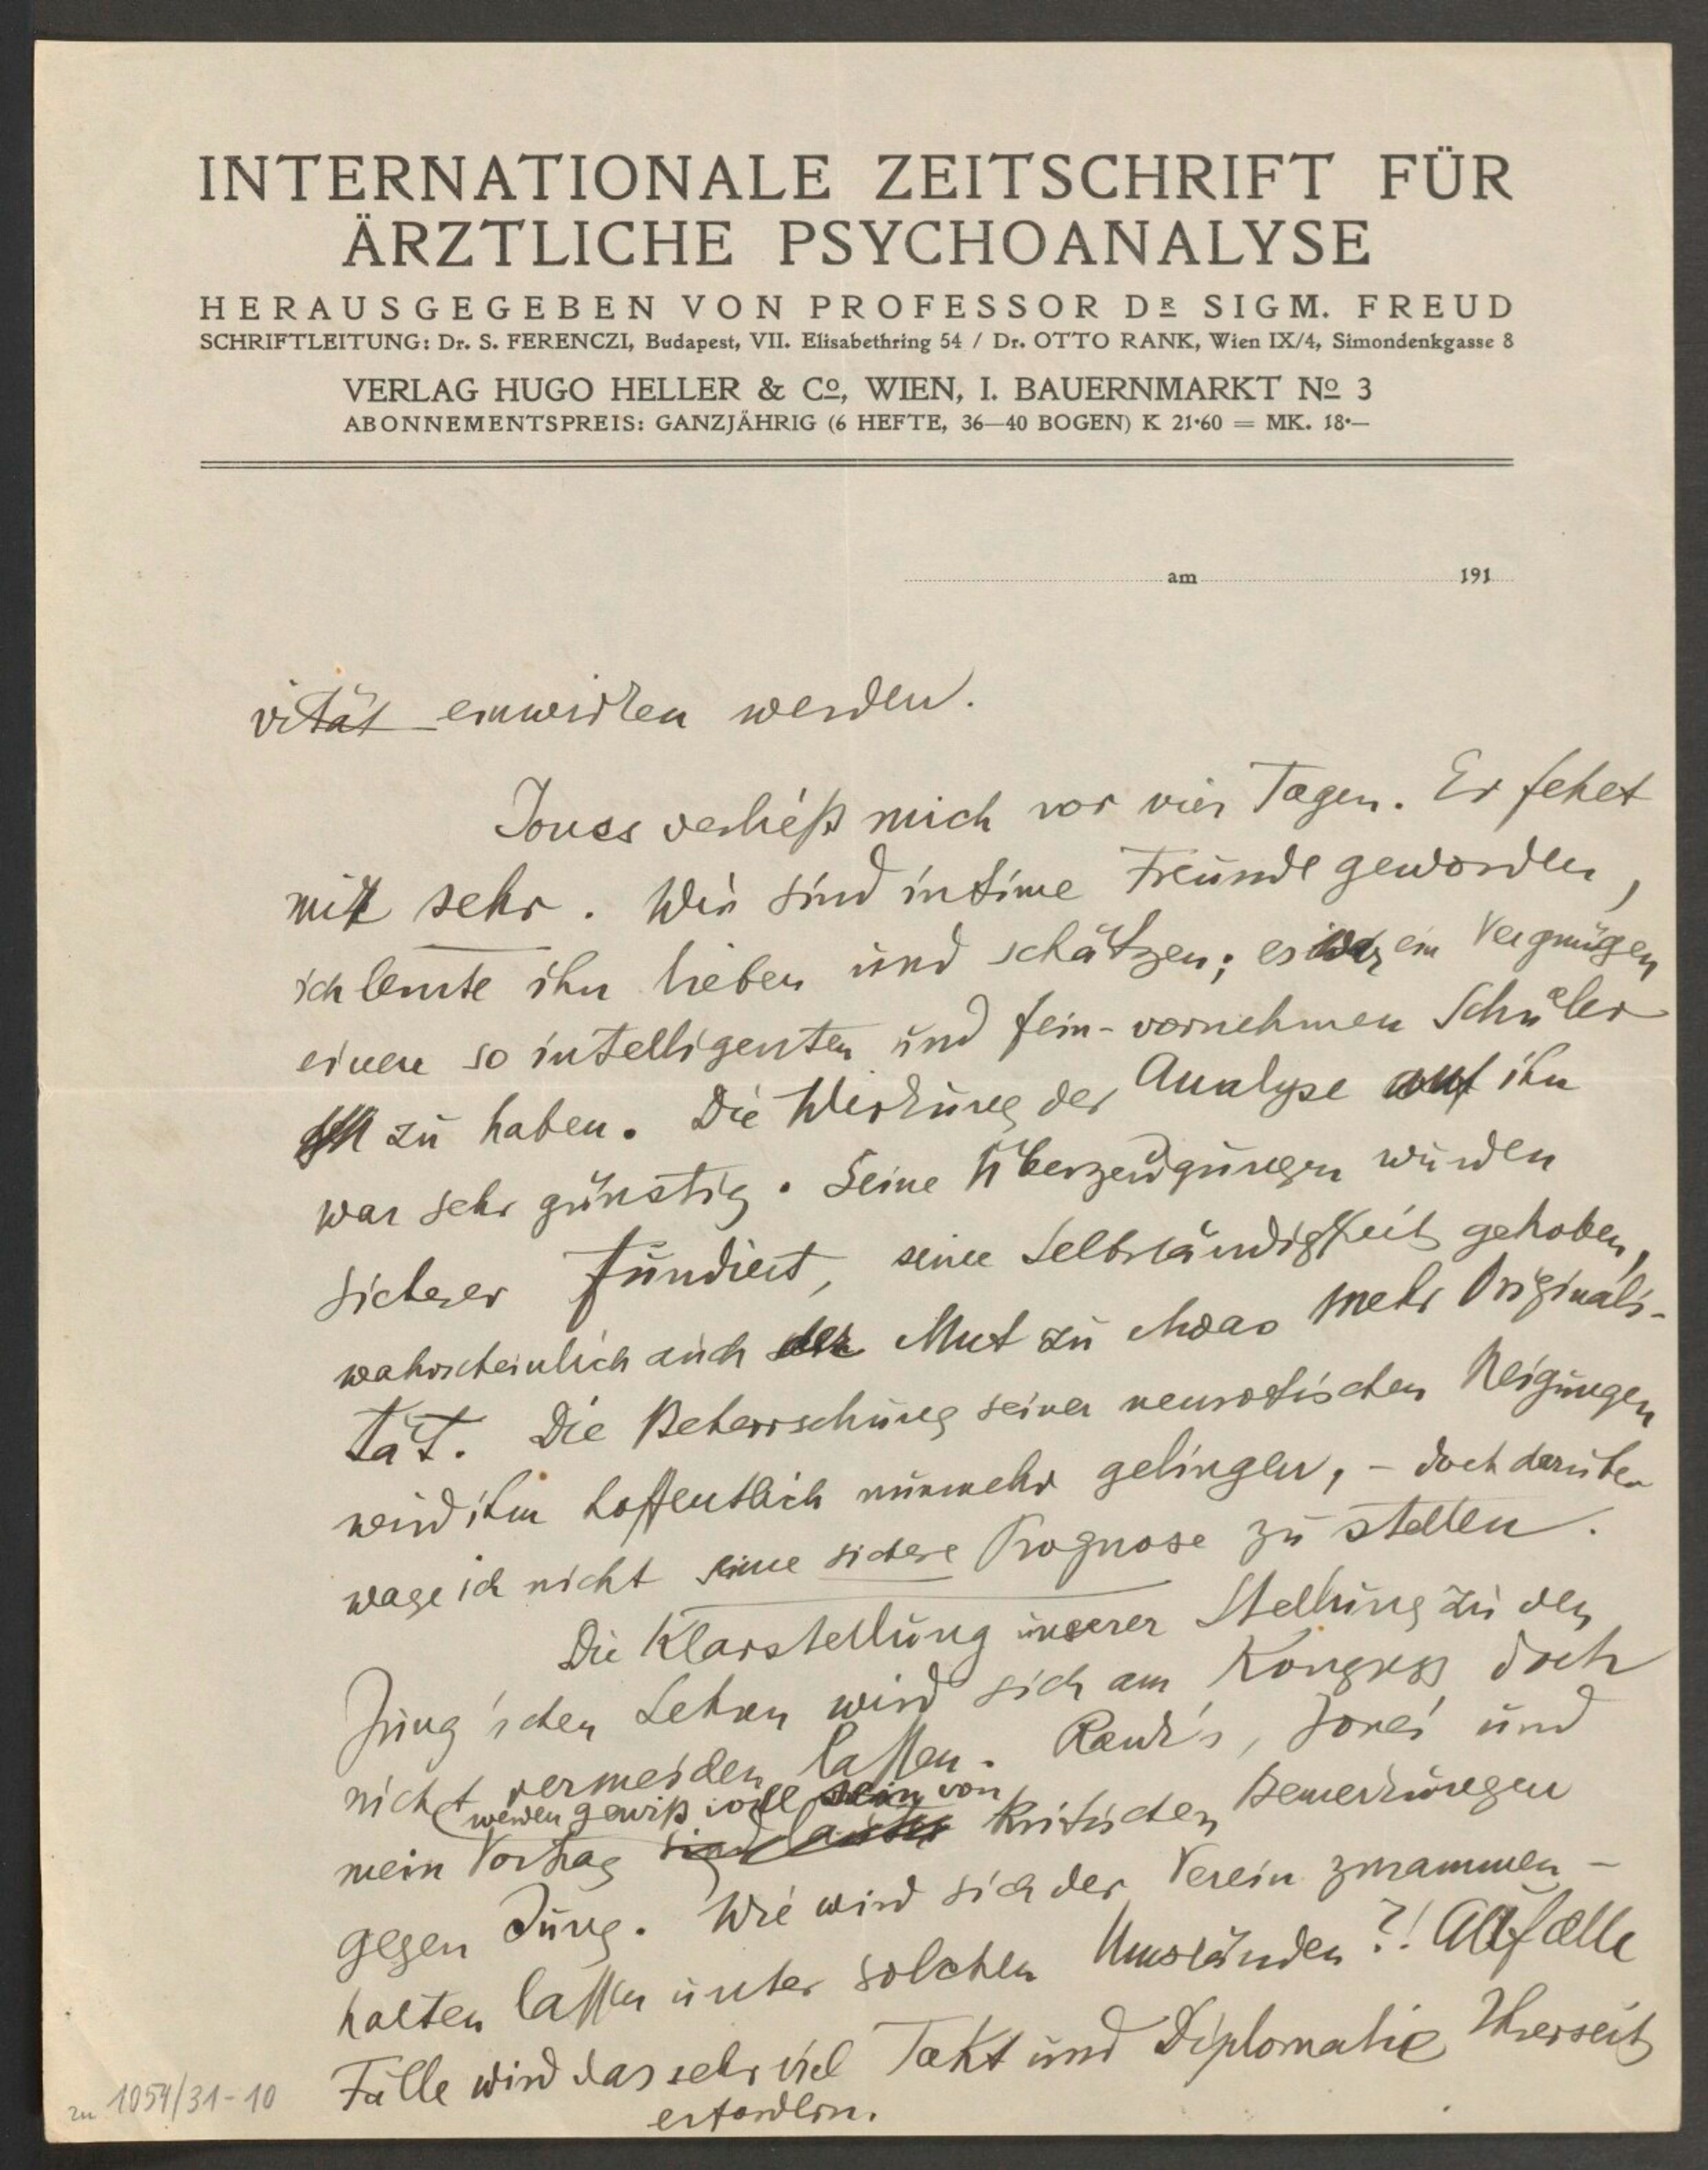 INTERNATIONALE ZEITSCHRIFT FÜR
ÄRZTLICHE PSYCHOANALYSE
HERAUSGEGEBEN VON PROFESSOR DR SIGM. FREUD
SCHRIFTLEITUNG: Dr. S. FERENCZI, Budapest, VII. Elisabethring 54 / Dr. OTTO RANK, Wien IX/4, Simondenkgasse 8
VERLAG HUGO HELLER & Co, WIEN, I. BAUERNMARKT No 3
ABONNEMENTSPREIS: GANZJÄHRIG (6 HEFTE, 36—40 BOGEN) K 21·60 = MK. 18·—
am 191
vität einwirken werden.
Jones verließ mich vor vier Tagen. Er fehet
mir sehr. Wir sind intime Freunde geworden,
ich lernte ihn lieben und schätzen; es war ein Vergnügen
einen so intelligenten und fein-vornehmen Schüler
zu haben. Die Wirkung der Analyse auf ihn
war sehr günstig. Seine Überzeugungen wurden
sicherer fundiert, seine Selbständigkeit gehoben,
wahrscheinlich auch der Mut zu etwas mehr Originali-
tät. Die Beherrschung seiner neurotischen Neigungen
wird ihm hoffentlich nunmehr gelingen, - doch darüber
wage ich nicht eine sichere Prognose zu stellen.
Die Klarstellung unserer Stellung zu den
Jung'schen Lehren wird sich am Kongress doch
nicht vermeiden lassen. Rank's, Jones' und
werden gewiß voll sein von
mein Vortrag sind lauter kritischen Bemerkungen
gegen Jung. Wie wird sich der Verein zusammen-
halten lassen unter solchen Umständen?! Auf alle
Fälle wird das sehr viel Takt und Diplomatie Ihrerseits
erfordern.
zu 1054/31-10